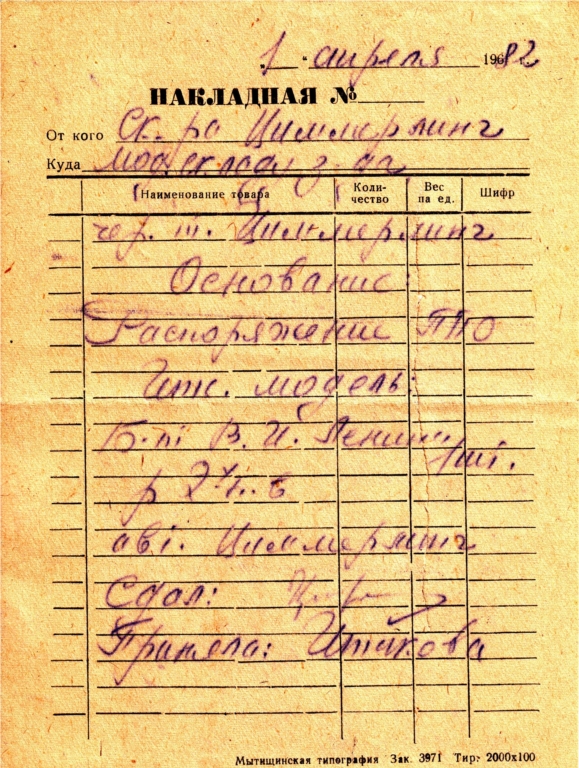 „1" апреля 19682 г.
НАКЛАДНАЯ №
От кого Ск-ра Циммерлинг
Куда
Наименование товара Коли-чество Вес па ед. Шифр
чер. т. Циммерлинг
Основание:
Распоряжение ПТО
модель:
Б-т В. И. Ленин 1шт.
р
авт. Циммерлинг
Сдал:
Приняла:
Мытищинская типография Зак. 3971 Тир. 2000х100